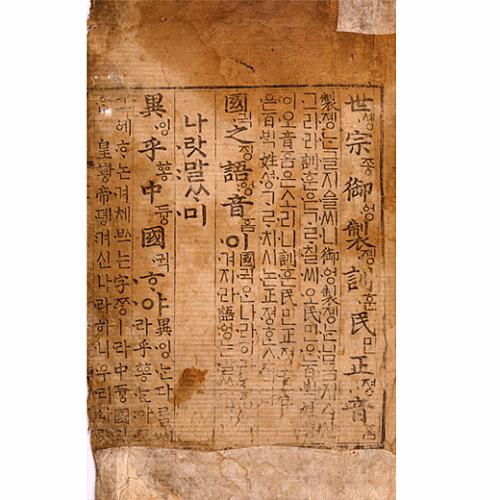 世솅宗종御ᅌᅥᆼ製졩訓훈民민正져ᇰ音ᅙᅳᆷ
製졩ᄂᆞᆫ글지ᅀᅳᆯ씨니御ᅌᅥᆼ製졩ᄂᆞᆫ님금지ᅀᅳ샨
그리라訓훈은ᄀᆞᄅᆞ칠씨오民민ᄋᆞᆫ百ᄇᆡᆨ姓셔ᇰ
이오音ᅙᅳᆷ은소리니訓훈民민正져ᇰ音ᅙᅳᆷ
은百ᄇᆡᆨ姓셔ᇰᄀᆞᄅᆞ치시논正져ᇰᄒᆞᆫ소
國귁之징語ᅌᅥᆼ音ᅙᅳᆷ이
國귁ᄋᆞᆫ나라히라
겨지라語ᅌᅥᆼ는
나랏말ᄊᆞ미
異잉乎ᅘᅩᆼ中듀ᇰ國귁ᄒᆞ야
異잉ᄂᆞᆫ다ᄅᆞᆯ
라乎ᅘᅩᆼᄂᆞᆫ아
그ᅌᅦᄒᆞ논겨체ᄡᅳ는字ᄍᆞᆼㅣ라中듀ᇰ國
皇ᅘᅪᇰ帝뎽겨신나라히니우리